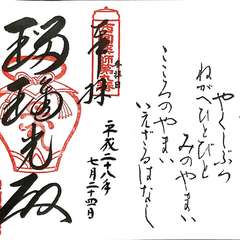 やくしぶつ
ねがへひとびと
みのやまい
こころのやまい
いえざるはなし
奉拝
参拝日
平成二十八年
七月二十四日
瑠璃光殿